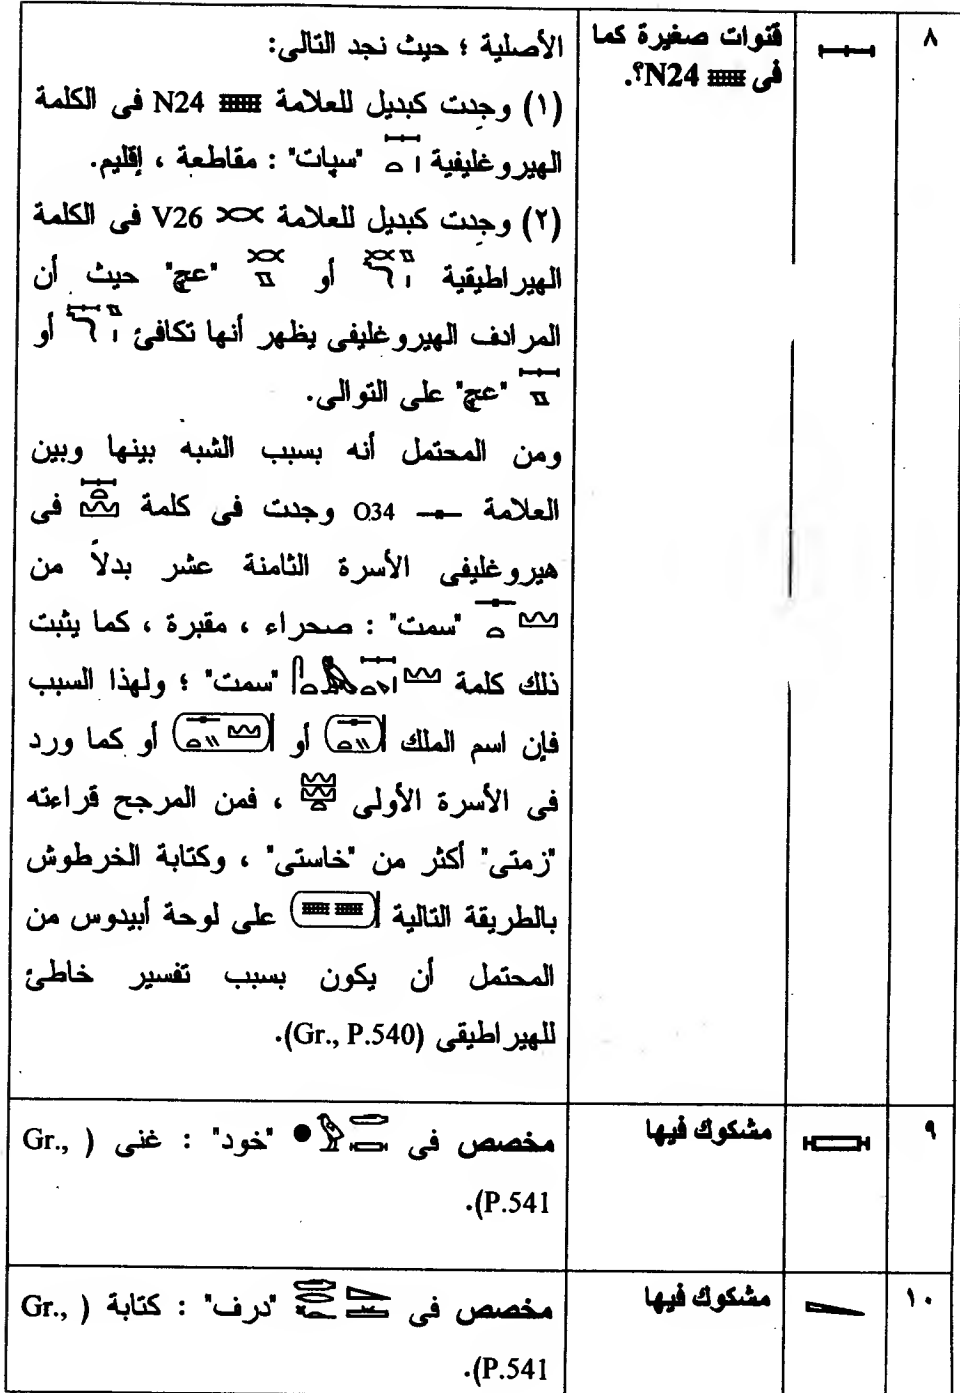 ٨
قنوات صغيرة كما
فى N24؟.
الأصلية ؛ حيث نجد التالى:
(١) وجدت كبديل للعلامة N24 فى الكلمة
الهيروغليفية "سپات" : مقاطعة ، إقليم.
(٢) وجدت كبديل للعلامة V26 فى الكلمة
الهيراطيقية أو "عچ" حيث أن
المرادف الهيروغليفى يظهر أنها تكافئ أو
"عچ" على التوالى.
ومن المحتمل أنه بسبب الشبه بينها وبين
العلامة O34 وجدت فى كلمة فى
هيروغليفى الأسرة الثامنة عشر بدلاً من
"سمت" : صحراء ، مقبرة ، كما يثبت
ذلك كلمة "سمت" ؛ ولهذا السبب
فإن اسم الملك أو أو كما ورد
فى الأسرة الأولى ، فمن المرجح قراءته
"زمتى" أكثر من "خاستى" ، وكتابة الخرطوش
بالطريقة التالية على لوحة أبيدوس من
المحتمل أن يكون بسبب تفسير خاطئ
للهيراطيقى (Gr., P.540).
٩
مشكوك فيها
مخصص فى "خود" : غنى (Gr.,
P.541).
١٠
مشكوك فيها
مخصص فى "درف" : كتابة (Gr.,
P.541).